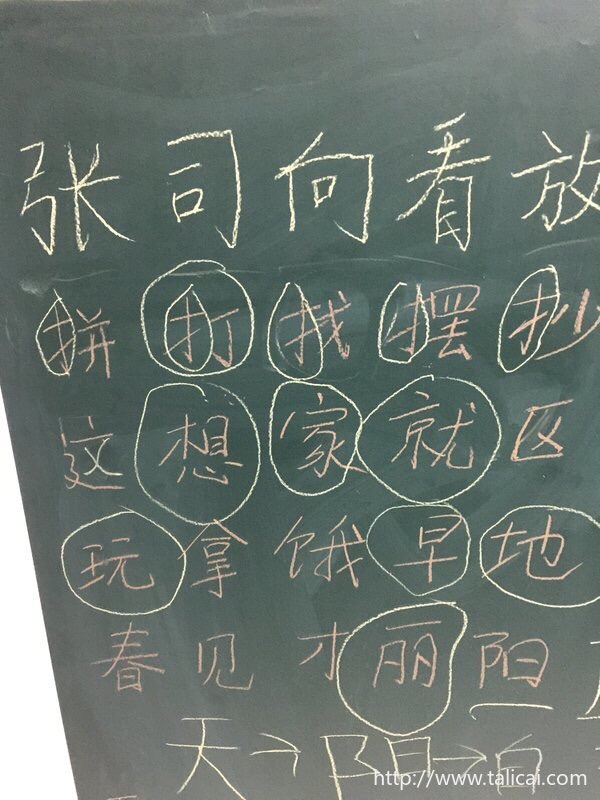 张司向看放
拼打找摆抄
这想家就区
玩拿饿早地
春见才丽阳
天→阳→自
http://www.talicai.com